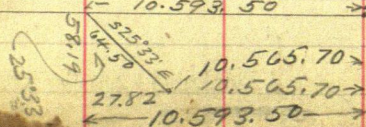 10.593.50
58.19
S25°33'E
64.50
25°33
10.565.70
10.565.70
27.82
10.593.50